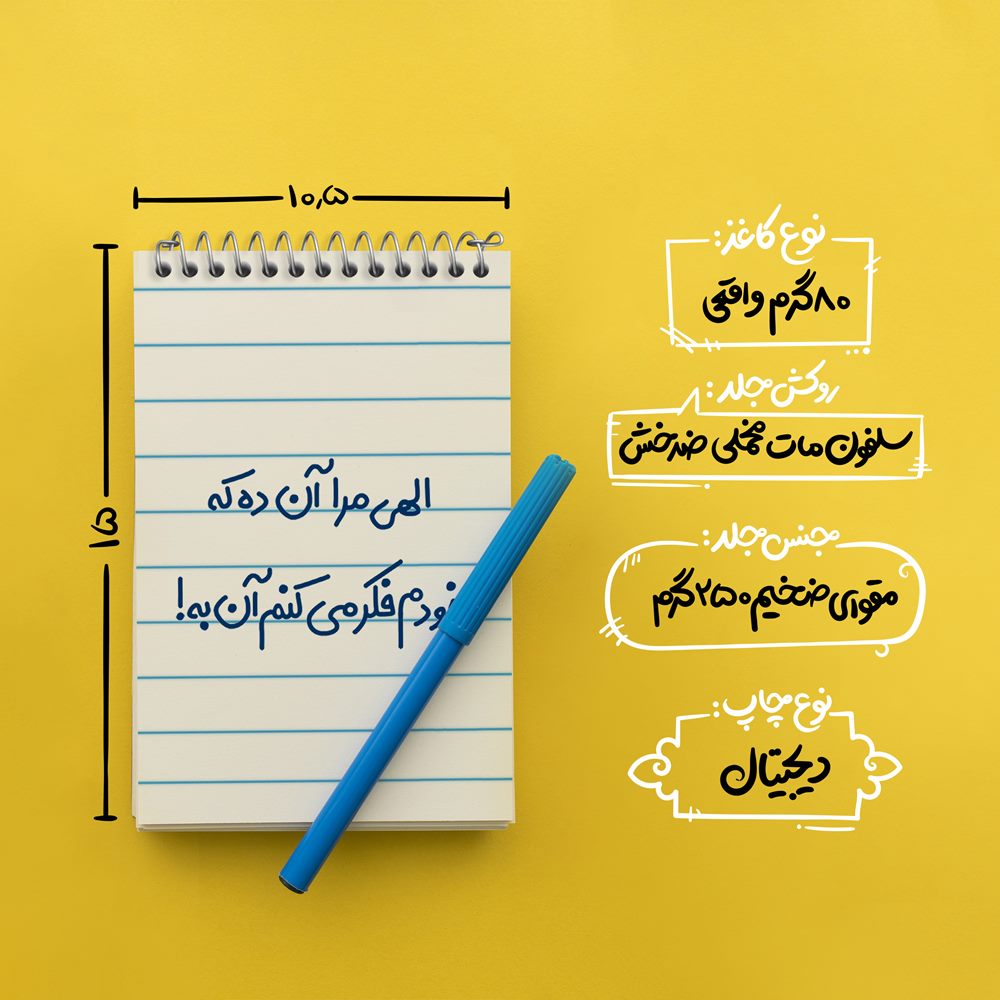 ۱۰٫۵
۱۵
الهی مرا آن ده که
خودم فکر می کنم آن به!
نوع کاغذ:
۸۰ گرم واقعی
روکش جلد:
سلفون مات مخملی ضدخش
جنس جلد:
مقوای ضخیم ۲۵۰ گرم
نوع چاپ:
دیجیتال